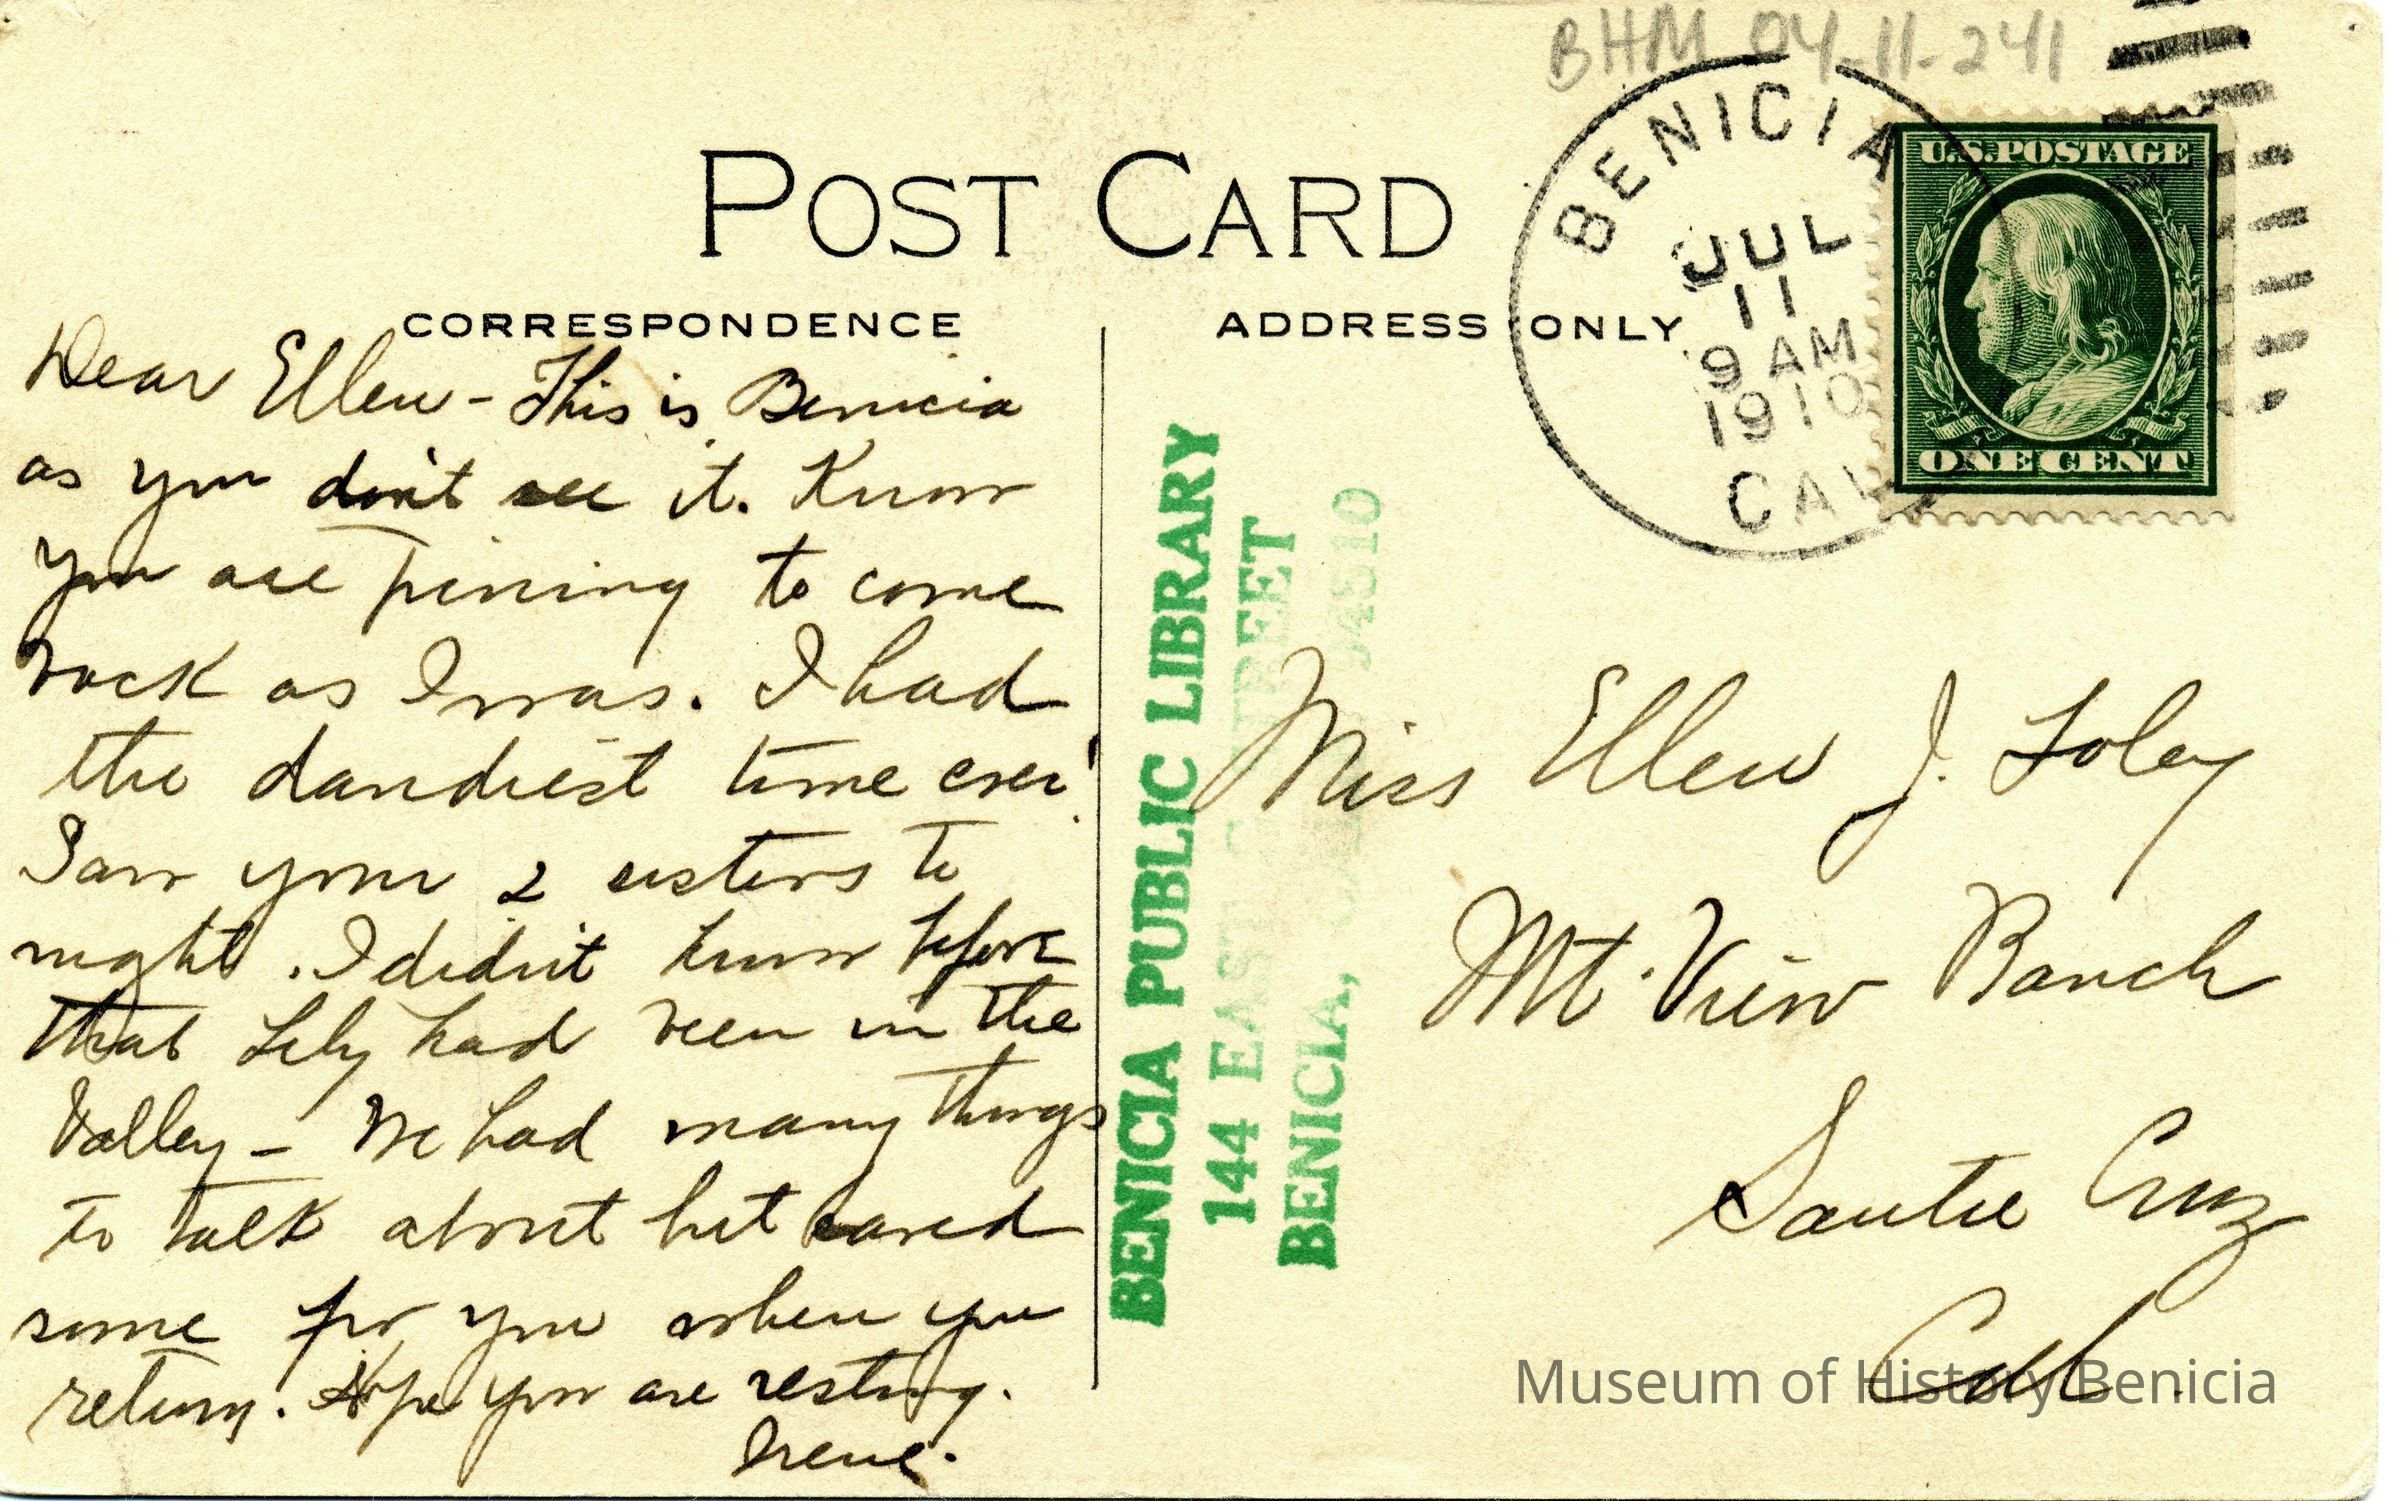 BHM 04-11-241
POST CARD
CORRESPONDENCE
ADDRESS ONLY
BENICIA
JUL
11
9 AM
1910
CAL
U.S. POSTAGE
ONE CENT
Dear Ellen - This is Benicia
as you don't see it. Know
you are pining to come
back as I was. I had
the dandiest time ever!
Saw your 2 sisters to
night. I didn't know before
that Lily had been in the
Valley - We had many things
to talk about but saved
some for you when you
return. Hope you are resting.
Irene.
BENICIA PUBLIC LIBRARY
144 EAST STREET
BENICIA, 94510
Miss Ellen J. Foley
Mt. View Ranch
Santa Cruz
Cal.
Museum of History Benicia